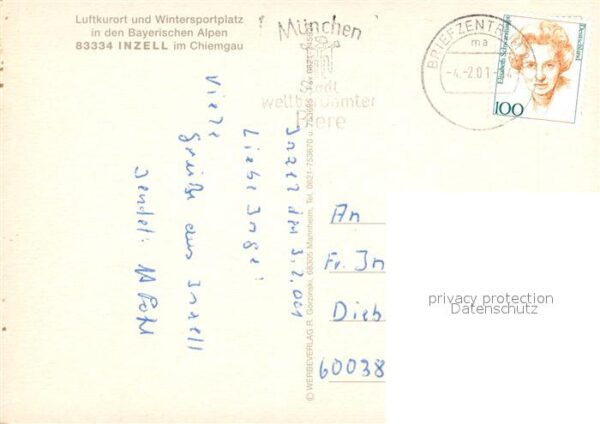 Luftkurort und Wintersportplatz
in den Bayerischen Alpen
83334 INZELL im Chiemgau
München
Stadt
weltberühmter
Biere
BRIEFZENTRUM
ma
-4.-2.01
Elisabeth Schwarzhaupt
Deutschland
100
Inzell den 3.2.001
Liebe Inge!
Viele
Grüße aus Inzell
© WERBEVERLAG R. Gorzinski, 68305 Mannheim, Tel. 0621-753670 u.
An
Fr. In
Dieb
60038
privacy protection
Datenschutz